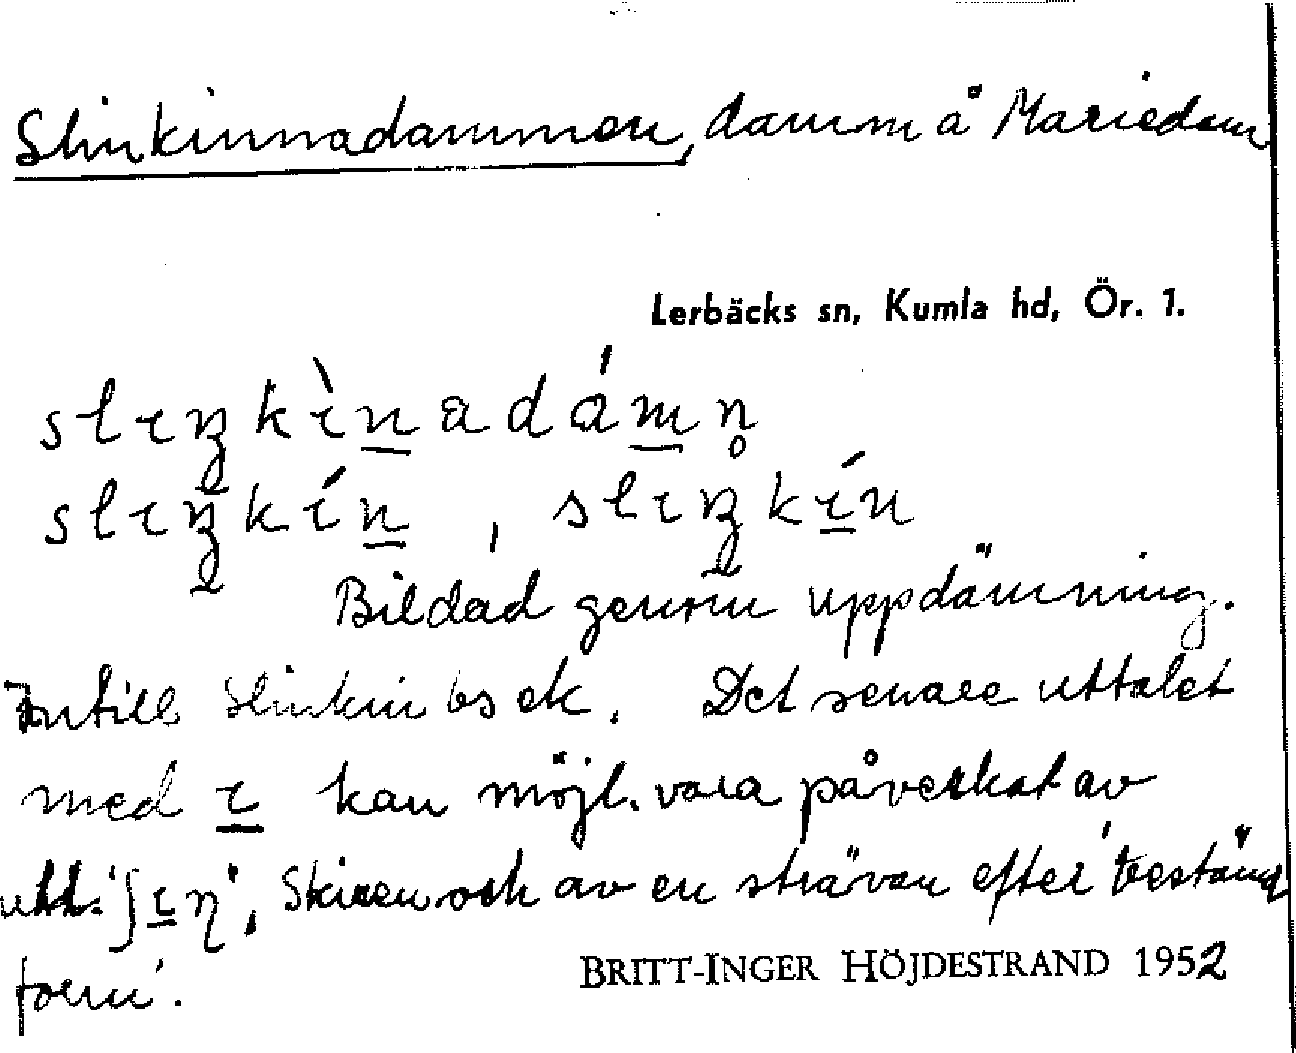 Slinkinnadammen, damm å Mariedam
Lerbäcks sn, Kumla hd, Ör. 1.
slıŋkı̀n̲adám̲n̥
slıŋkı́n̲, slıŋkı̲́n
Bildad genom uppdämning.
Intill Slinkin bs ek. Det senare uttalet
med ı̲ kan möjl. vara påverkat av
utt. 'ʃı̲η', Skiren och av en strävan efter 'bestämd
form'.
BRITT-INGER HÖJDESTRAND 1952